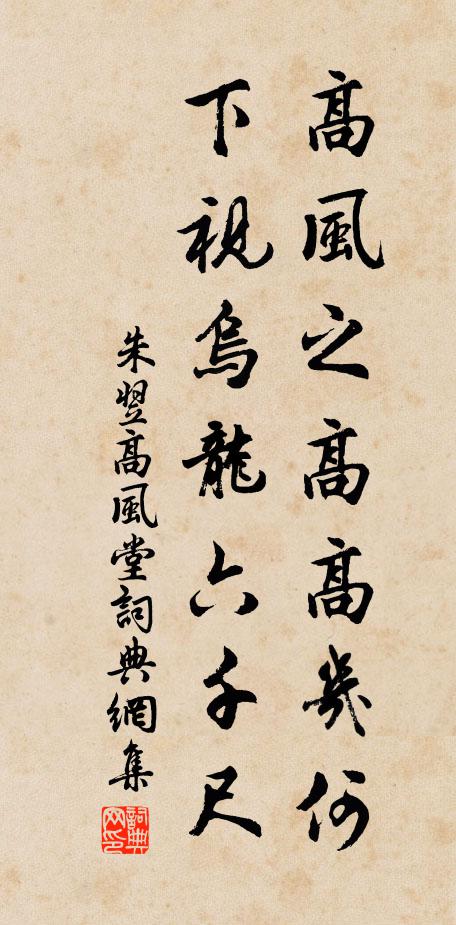 高風之高高幾何
下視烏龍六千尺
朱翌高風堂詞典網集
詞典網印